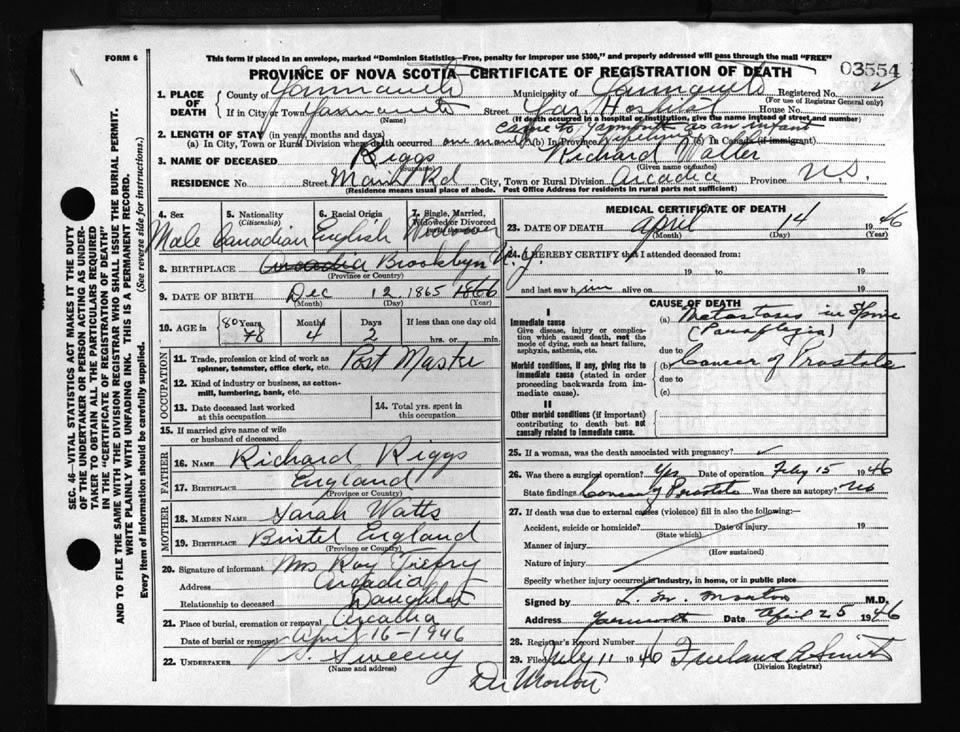 FORM 6
This form if placed in an envelope, marked "Dominion Statistics—Free, penalty for improper use $300," and properly addressed will pass through the mail "FREE"
PROVINCE OF NOVA SCOTIA—CERTIFICATE OF REGISTRATION OF DEATH
03554
SEC. 46—VITAL STATISTICS ACT MAKES IT THE DUTY
OF THE UNDERTAKER OR PERSON ACTING AS UNDER-
TAKER TO OBTAIN ALL THE PARTICULARS REQUIRED
IN THE "CERTIFICATE OF REGISTRATION OF DEATH"
AND TO FILE THE SAME WITH THE DIVISION REGISTRAR WHO SHALL ISSUE THE BURIAL PERMIT.
WRITE PLAINLY WITH UNFADING INK. THIS IS A PERMANENT RECORD.
Every item of information should be carefully supplied. (See reverse side for instructions.)
1. PLACE OF DEATH
County of Yarmouth Municipality of Yarmouth Registered No.
(For use of Registrar General only)
If in City or Town Yarmouth Street Yar. Hospital House No.
(Name) (If death occurred in a hospital or institution, give the name instead of street and number)
came to Yarmouth as an infant
2. LENGTH OF STAY (in years, months and days)
(a) In City, Town or Rural Division where death occurred one month (b) In Province (c) In Canada (if immigrant)
3. NAME OF DECEASED Riggs Richard Walter
(Surname) (Given name or names)
RESIDENCE No. Street Main Rd City, Town or Rural Division Arcadia Province N.S.
(Residence means usual place of abode. Post Office Address for residents in rural parts not sufficient)
4. Sex Male
5. Nationality (Citizenship) Canadian
6. Racial Origin English
7. Single, Married, Widowed or Divorced Widower
8. BIRTHPLACE Arcadia Brooklyn N.Y.
(Province or Country)
9. DATE OF BIRTH Dec 12 1865 1866
(Month) (Day) (Year)
10. AGE in 80 Years 78 Months 4 Days 2 If less than one day old
hrs. or min.
OCCUPATION
11. Trade, profession or kind of work as spinner, teamster, office clerk, etc. Post Master
12. Kind of industry or business, as cotton-mill, lumbering, bank, etc.
13. Date deceased last worked at this occupation
14. Total yrs. spent in this occupation
15. If married give name of wife or husband of deceased
FATHER
16. NAME Richard Riggs
17. BIRTHPLACE England
(Province or Country)
MOTHER
18. MAIDEN NAME Sarah Watts
19. BIRTHPLACE Bristol England
(Province or Country)
20. Signature of informant Mrs Roy Trefry
Address Arcadia
Relationship to deceased Daughter
21. Place of burial, cremation or removal Arcadia
Date of burial or removal April 16-1946
22. UNDERTAKER Sweeny
(Name and address)
Dr Morton
MEDICAL CERTIFICATE OF DEATH
23. DATE OF DEATH April 14 1946
(Month) (Day) (Year)
24. I HEREBY CERTIFY that I attended deceased from:
19 to 19
and last saw him alive on 19
CAUSE OF DEATH
I
Immediate cause
Give disease, injury or complication which caused death, not the mode of dying, such as heart failure, asphyxia, asthenia, etc.
(a) Metastases in Spine
(Paraplegia)
due to
Morbid conditions, if any, giving rise to immediate cause (stated in order proceeding backwards from immediate cause).
(b) Cancer of Prostate
due to
(c)
II
Other morbid conditions (if important) contributing to death but not causally related to immediate cause.
25. If a woman, was the death associated with pregnancy?
26. Was there a surgical operation? Yes Date of operation Feby 15 1946
State findings Cancer of Prostate Was there an autopsy? No
27. If death was due to external causes (violence) fill in also the following:—
Accident, suicide or homicide? Date of injury 19
(State which)
Manner of injury
(How sustained)
Nature of injury
Specify whether injury occurred in industry, in home, or in public place
Signed by L. M. Morton M.D.
Address Yarmouth Date April 25 1946
28. Registrar's Record Number
29. Filed July 11 1946 Freeland A Smith
(Division Registrar)